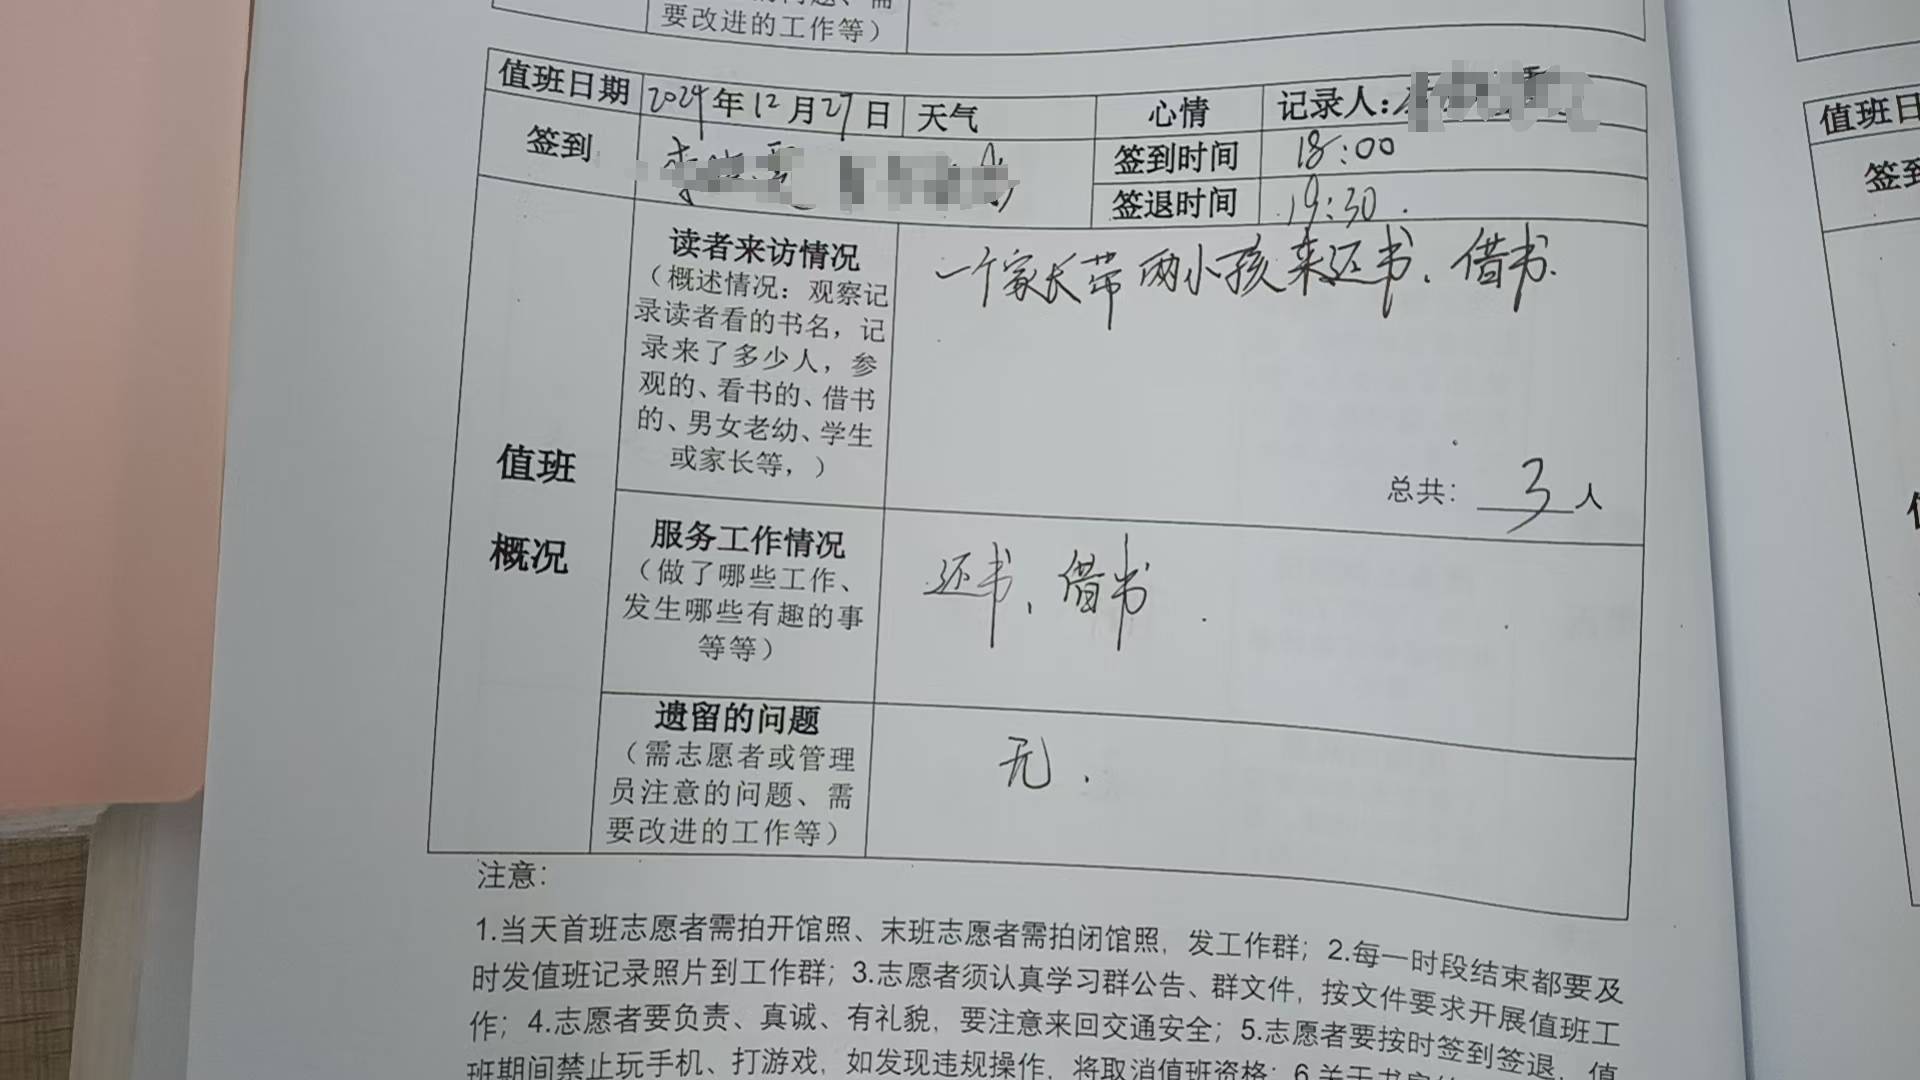 要改进的工作等）
值班日期 2024年12月27日 天气 心情 记录人：
签到 签到时间 18:00
签退时间 19:30.
读者来访情况
（概述情况：观察记
录读者看的书名，记
录来了多少人，参
观的、看书的、借书
的、男女老幼、学生
或家长等，）
一个家长带两小孩来还书、借书.
总共： 3 人
值班
概况
服务工作情况
（做了哪些工作、
发生哪些有趣的事
等等）
还书、借书
遗留的问题
（需志愿者或管理
员注意的问题、需
要改进的工作等）
无.
注意：
1.当天首班志愿者需拍开馆照、末班志愿者需拍闭馆照，发工作群；2.每一时段结束都要及
时发值班记录照片到工作群；3.志愿者须认真学习群公告、群文件，按文件要求开展值班工
作；4.志愿者要负责、真诚、有礼貌，要注意来回交通安全；5.志愿者要按时签到签退，值
班期间禁止玩手机、打游戏，如发现违规操作，将取消值班资格；6.关于书
值班日
签到